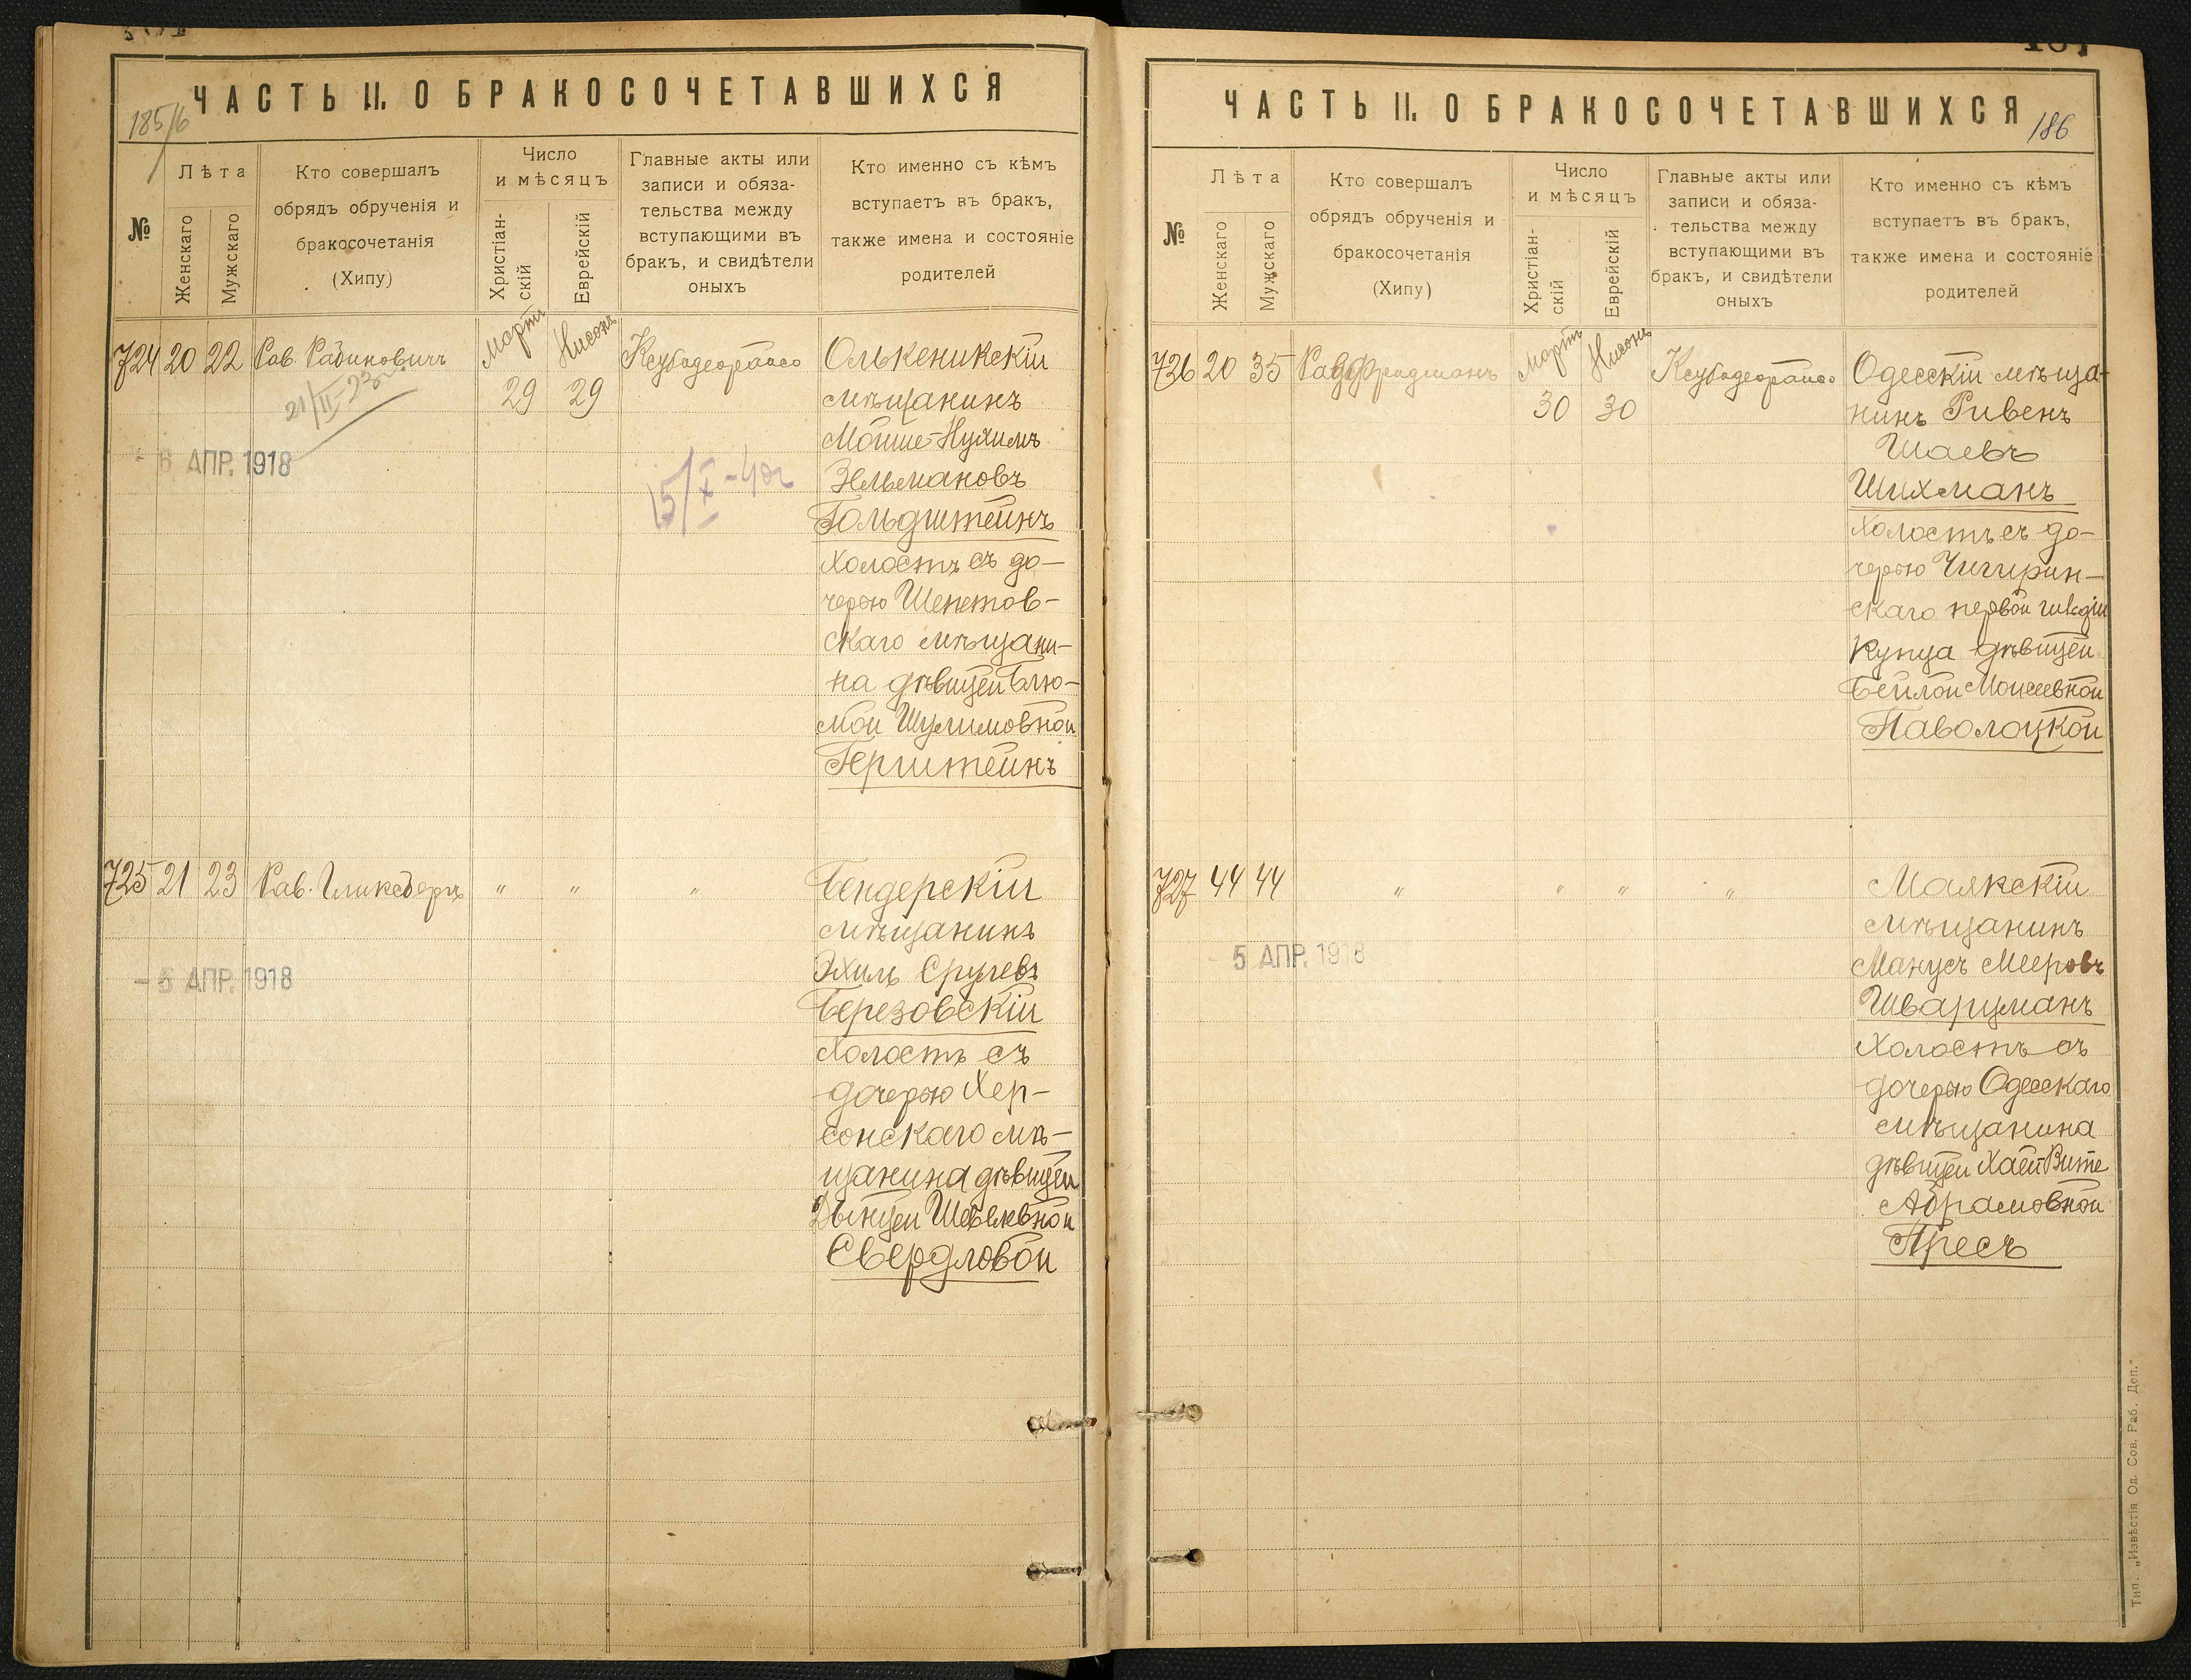 ЧАСТЬ II. О БРАКОСОЧЕТАВШИХСЯ
185/6
№
Лѣта
Женскаго
Мужскаго
Кто совершалъ
обрядъ обрученія и
бракосочетанія
(Хипу)
Число
и мѣсяцъ
Христіан-
скій
Еврейскій
Главные акты или
записи и обяза-
тельства между
вступающими въ
бракъ, и свидѣтели
оныхъ
Кто именно съ кѣмъ
вступаетъ въ бракъ,
также имена и состояніе
родителей
724 20 22 Рав. Рабиновичъ Мартъ 29 Нисонъ 29 Ксубадеорайсо
21/II-23
- 6 АПР. 1918
15/X-40г
Олькеникскій
мѣщанинъ
Мойше-Нухимъ
Зельмановъ
Гольдштейнъ
холостъ съ до-
черью Шепетов-
скаго мѣщани-
на дѣвицей Блю-
мой Шулимовной
Герштейнъ
725 21 23 Рав. Гликсбергъ " " "
- 5 АПР. 1918
Бендерскій
мѣщанинъ
Эхиль Срулевъ
Березовскій
холостъ съ
дочерью Хер-
сонскаго мѣ-
щанина дѣвицей
Свердловой
ЧАСТЬ II. О БРАКОСОЧЕТАВШИХСЯ
186
№
Лѣта
Женскаго
Мужскаго
Кто совершалъ
обрядъ обрученія и
бракосочетанія
(Хипу)
Число
и мѣсяцъ
Христіан-
скій
Еврейскій
Главные акты или
записи и обяза-
тельства между
вступающими въ
бракъ, и свидѣтели
оныхъ
Кто именно съ кѣмъ
вступаетъ въ бракъ,
также имена и состояніе
родителей
726 20 35 Рав. Фридманъ Мартъ 30 Нисонъ 30 Ксубадеорайсо
Одесскій мѣща-
нинъ Ривенъ
Шаевъ
Шихманъ
холостъ съ до-
черью Чигирин-
скаго первой гильдіи
купца дѣвицей
Бейлой Моисеевной
Паволоцкой
727 44 44 " " " "
5 АПР. 1918
Маякскій
мѣщанинъ
Манусъ Мееровъ
Шварцманъ
холостъ съ
дочерью Одесскаго
мѣщанина
дѣвицей Хаей Вите
Абрамовной
Пресъ
Тип. „Извѣстія Од. Сов. Раб. Деп."